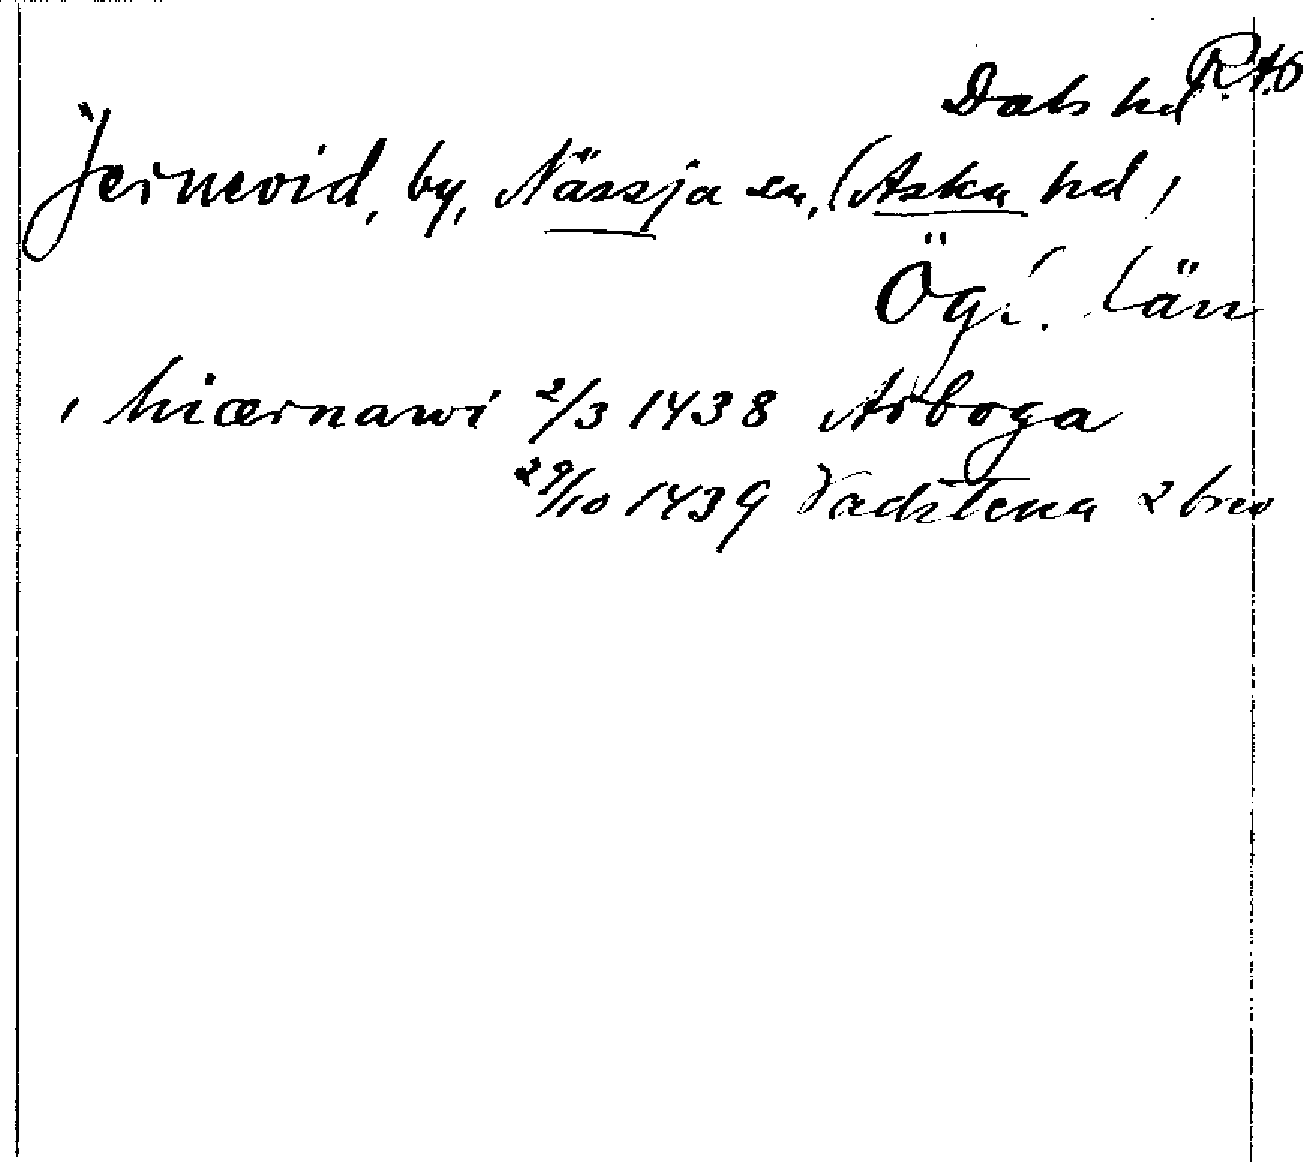 R.A.O
Dals hd
Jernevid, by, Nässja sn, (Aska hd,
Ögl. län
i hiærnawi 2/3 1438 Arboga
29/10 1439 Vadstena 2 brev